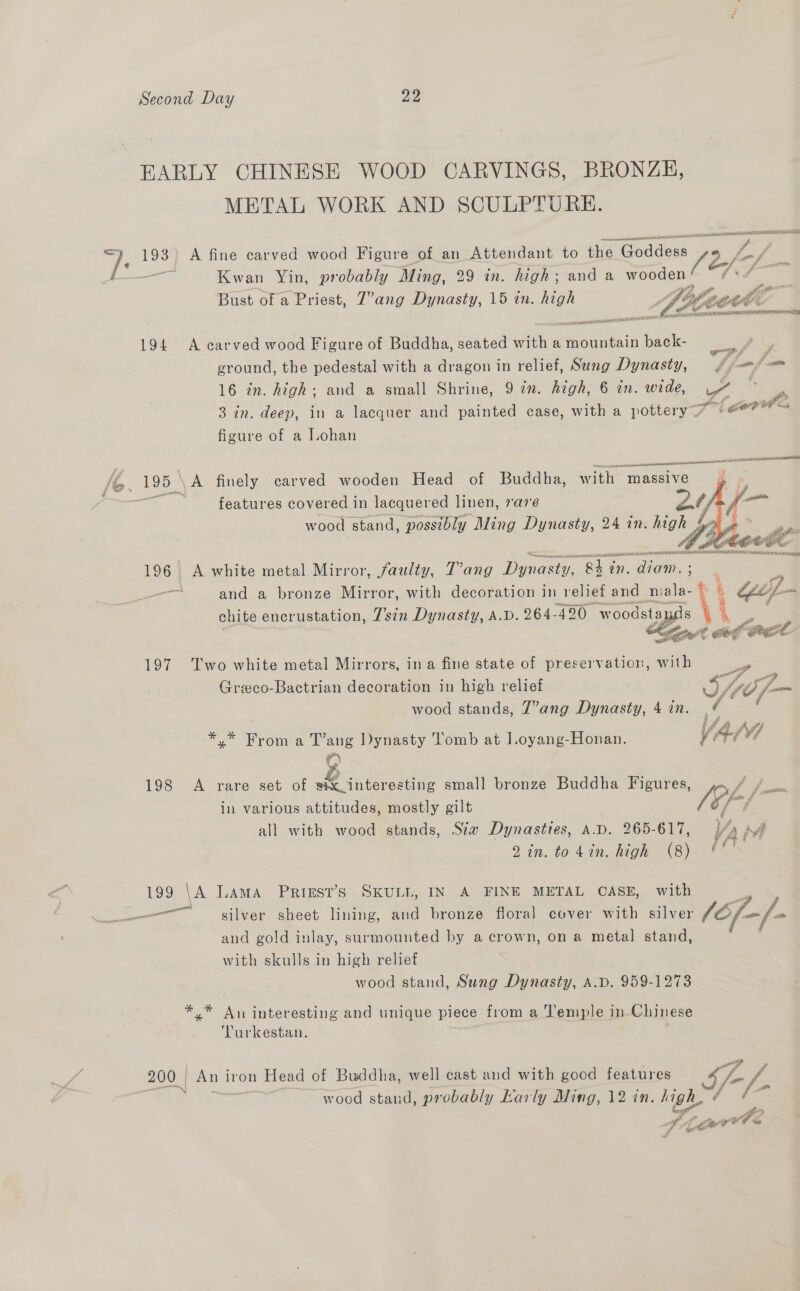 Second Day 22
EARLY CHINESE WOOD CARVINGS, BRONZE,
METAL WORK AND SCULPTURE.
7. 193 A fine carved wood Figure of an Attendant to the Goddess
Kwan Yin, probably Ming, 29 in. high; and a wooden
Bust of a Priest, T'ang Dynasty, 15 in. high
194 A carved wood Figure of Buddha, seated with a mountain back-
ground, the pedestal with a dragon in relief, Sung Dynasty,
16 in. high; and a small Shrine, 9 in. high, 6 in. wide,
3 in. deep, in a lacquer and painted case, with a pottery
figure of a Lohan
16. 195 A finely carved wooden Head of Buddha, with massive
features covered in lacquered linen, rare
wood stand, possibly Ming Dynasty, 24 in. high
196 A white metal Mirror, faulty, T'ang Dynasty, 8½ in. diam.;
and a bronze Mirror, with decoration in relief and mala-
chite encrustation, Tsin Dynasty, A.D. 264-420 woodstands
197 Two white metal Mirrors, in a fine state of preservation, with
Græco-Bactrian decoration in high relief
wood stands, T'ang Dynasty, 4 in.
*⁎* From a T'ang Dynasty Tomb at Loyang-Honan.
8
198 A rare set of six interesting small bronze Buddha Figures,
in various attitudes, mostly gilt
all with wood stands, Six Dynasties, A.D. 265-617,
2 in. to 4 in. high (8)
199 A LAMA PRIEST'S SKULL, IN A FINE METAL CASE, with
silver sheet lining, and bronze floral cover with silver
and gold inlay, surmounted by a crown, on a metal stand,
with skulls in high relief
wood stand, Sung Dynasty, A.D. 959-1273
*⁎* An interesting and unique piece from a Temple in Chinese
Turkestan.
200 An iron Head of Buddha, well cast and with good features
wood stand, probably Early Ming, 12 in. high